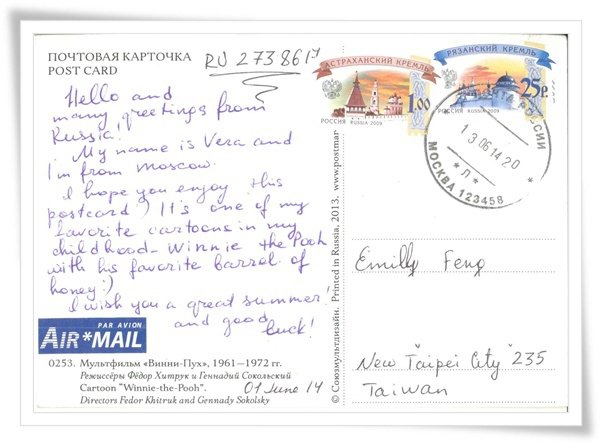 ПОЧТОВАЯ КАРТОЧКА
POST CARD
RU 2738617
Hello and
many greetings from
Russia!
My name is Vera and
I'm from Moscow.
I hope you enjoy this
postcard) It's one of my
favorite cartoons in my
childhood - Winnie the Pooh
with his favorite barrel of
honey:)
I wish you a great summer!
and good luck!
PAR AVION
AIR*MAIL
0253. Мультфильм «Винни-Пух», 1961—1972 гг.
Режиссёры Фёдор Хитрук и Геннадий Сокольский
Cartoon "Winnie-the-Pooh".
Directors Fedor Khitruk and Gennady Sokolsky
01 June 14
© Союзмультдизайн. Printed in Russia, 2013. www.postmar
АСТРАХАНСКИЙ КРЕМЛЬ
1.00
РОССИЯ ROSSIA·2009
РЯЗАНСКИЙ КРЕМЛЬ
25р
РОССИЯ ROSSIA·2009
РОССИИ
13 06 14 20
*Л*
МОСКВА 123458
Emilly Feng
New "Taipei City" 235
Taiwan